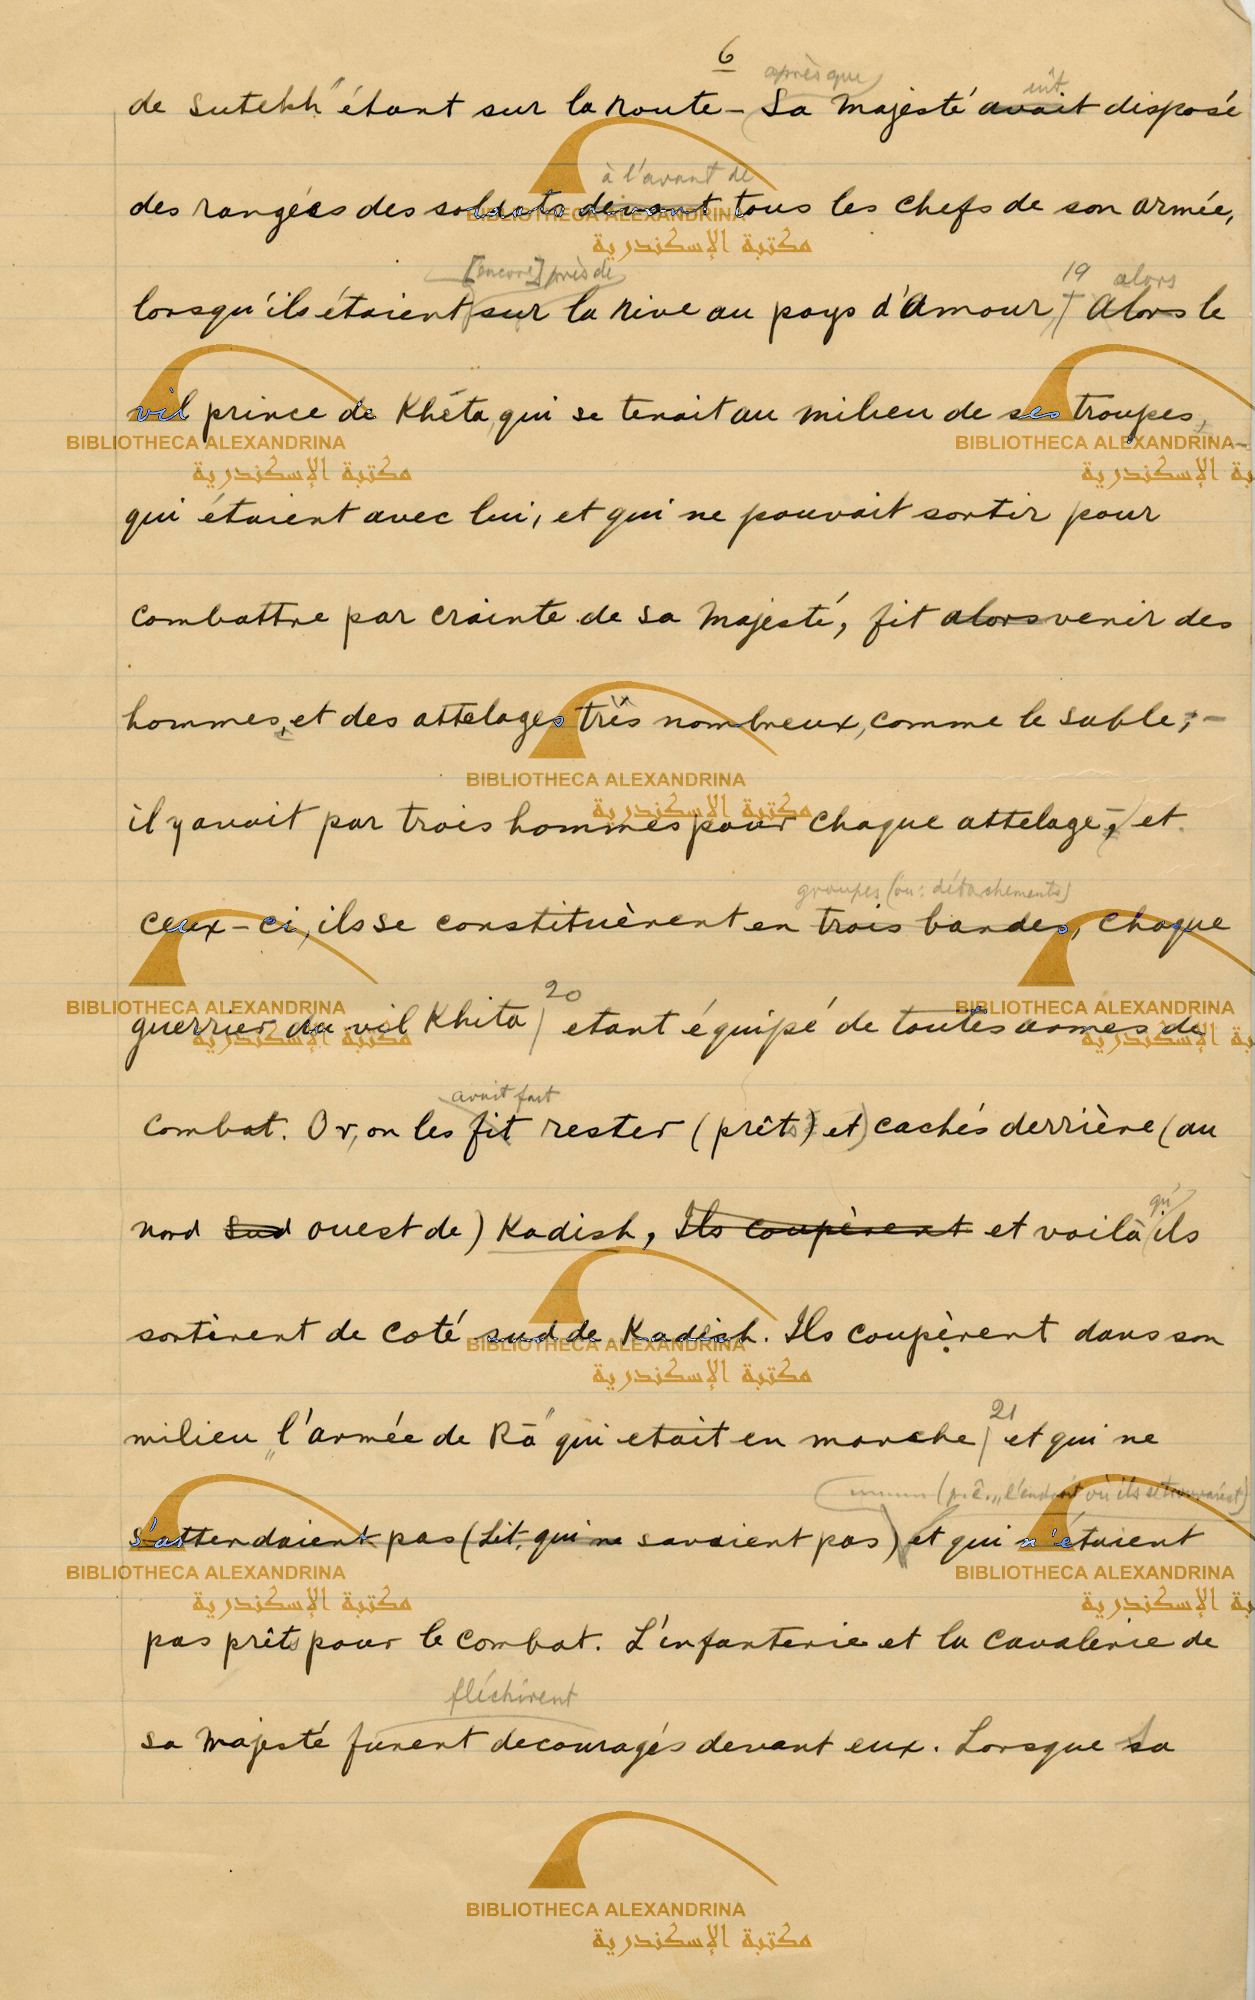 6
après que eût
de Sutekh" étant sur la route – Sa Majesté avait disposé
à l'avant de
des rangées des soldats devant tous les chefs de son armée,
[encore] près de 19 alors
lorsqu'ils étaient sur la rive au pays d'Amour, Alors le
vil prince de Khéta, qui se tenait au milieu de ses troupes,
qui étaient avec lui, et qui ne pouvait sortir pour
combattre par crainte de sa Majesté, fit alors venir des
hommes, et des attelages très nombreux, comme le sable; –
il y avait par trois hommes pour chaque attelage, et
groupes (ou: détachements)
ceux-ci, ils se constituèrent en trois bandes, chaque
20
guerrier du vil Khita) etant équipé de toutes armes de
avait fait
combat. Or, on les fit rester (prêts) et) cachés derrière (au
qu'
nord sud ouest de) Kadish, Ils coupèrent et voilà ils
sortirent de coté sud de Kadish. Ils coupèrent dans son
21
milieu „l'armée de Rā" qui etait en marche) et qui ne
(p.ê. „l'endroit où ils se trouvaient)
s'attendaient pas (Lit. qui ne savaient pas) et qui n'étaient
pas prêts pour le combat. L'infanterie et la cavalerie de
fléchirent
sa Majesté furent decouragés devant eux. Lorsque sa
BIBLIOTHECA ALEXANDRINA
مكتبة الإسكندرية
BIBLIOTHECA ALEXANDRINA
مكتبة الإسكندرية
BIBLIOTHECA ALEXANDRINA
BIBLIOTHECA ALEXANDRINA
مكتبة الإسكندرية
BIBLIOTHECA ALEXANDRINA
مكتبة الإسكندرية
BIBLIOTHECA ALEXANDRINA
BIBLIOTHECA ALEXANDRINA
مكتبة الإسكندرية
BIBLIOTHECA ALEXANDRINA
مكتبة الإسكندرية
BIBLIOTHECA ALEXANDRINA
BIBLIOTHECA ALEXANDRINA
مكتبة الإسكندرية